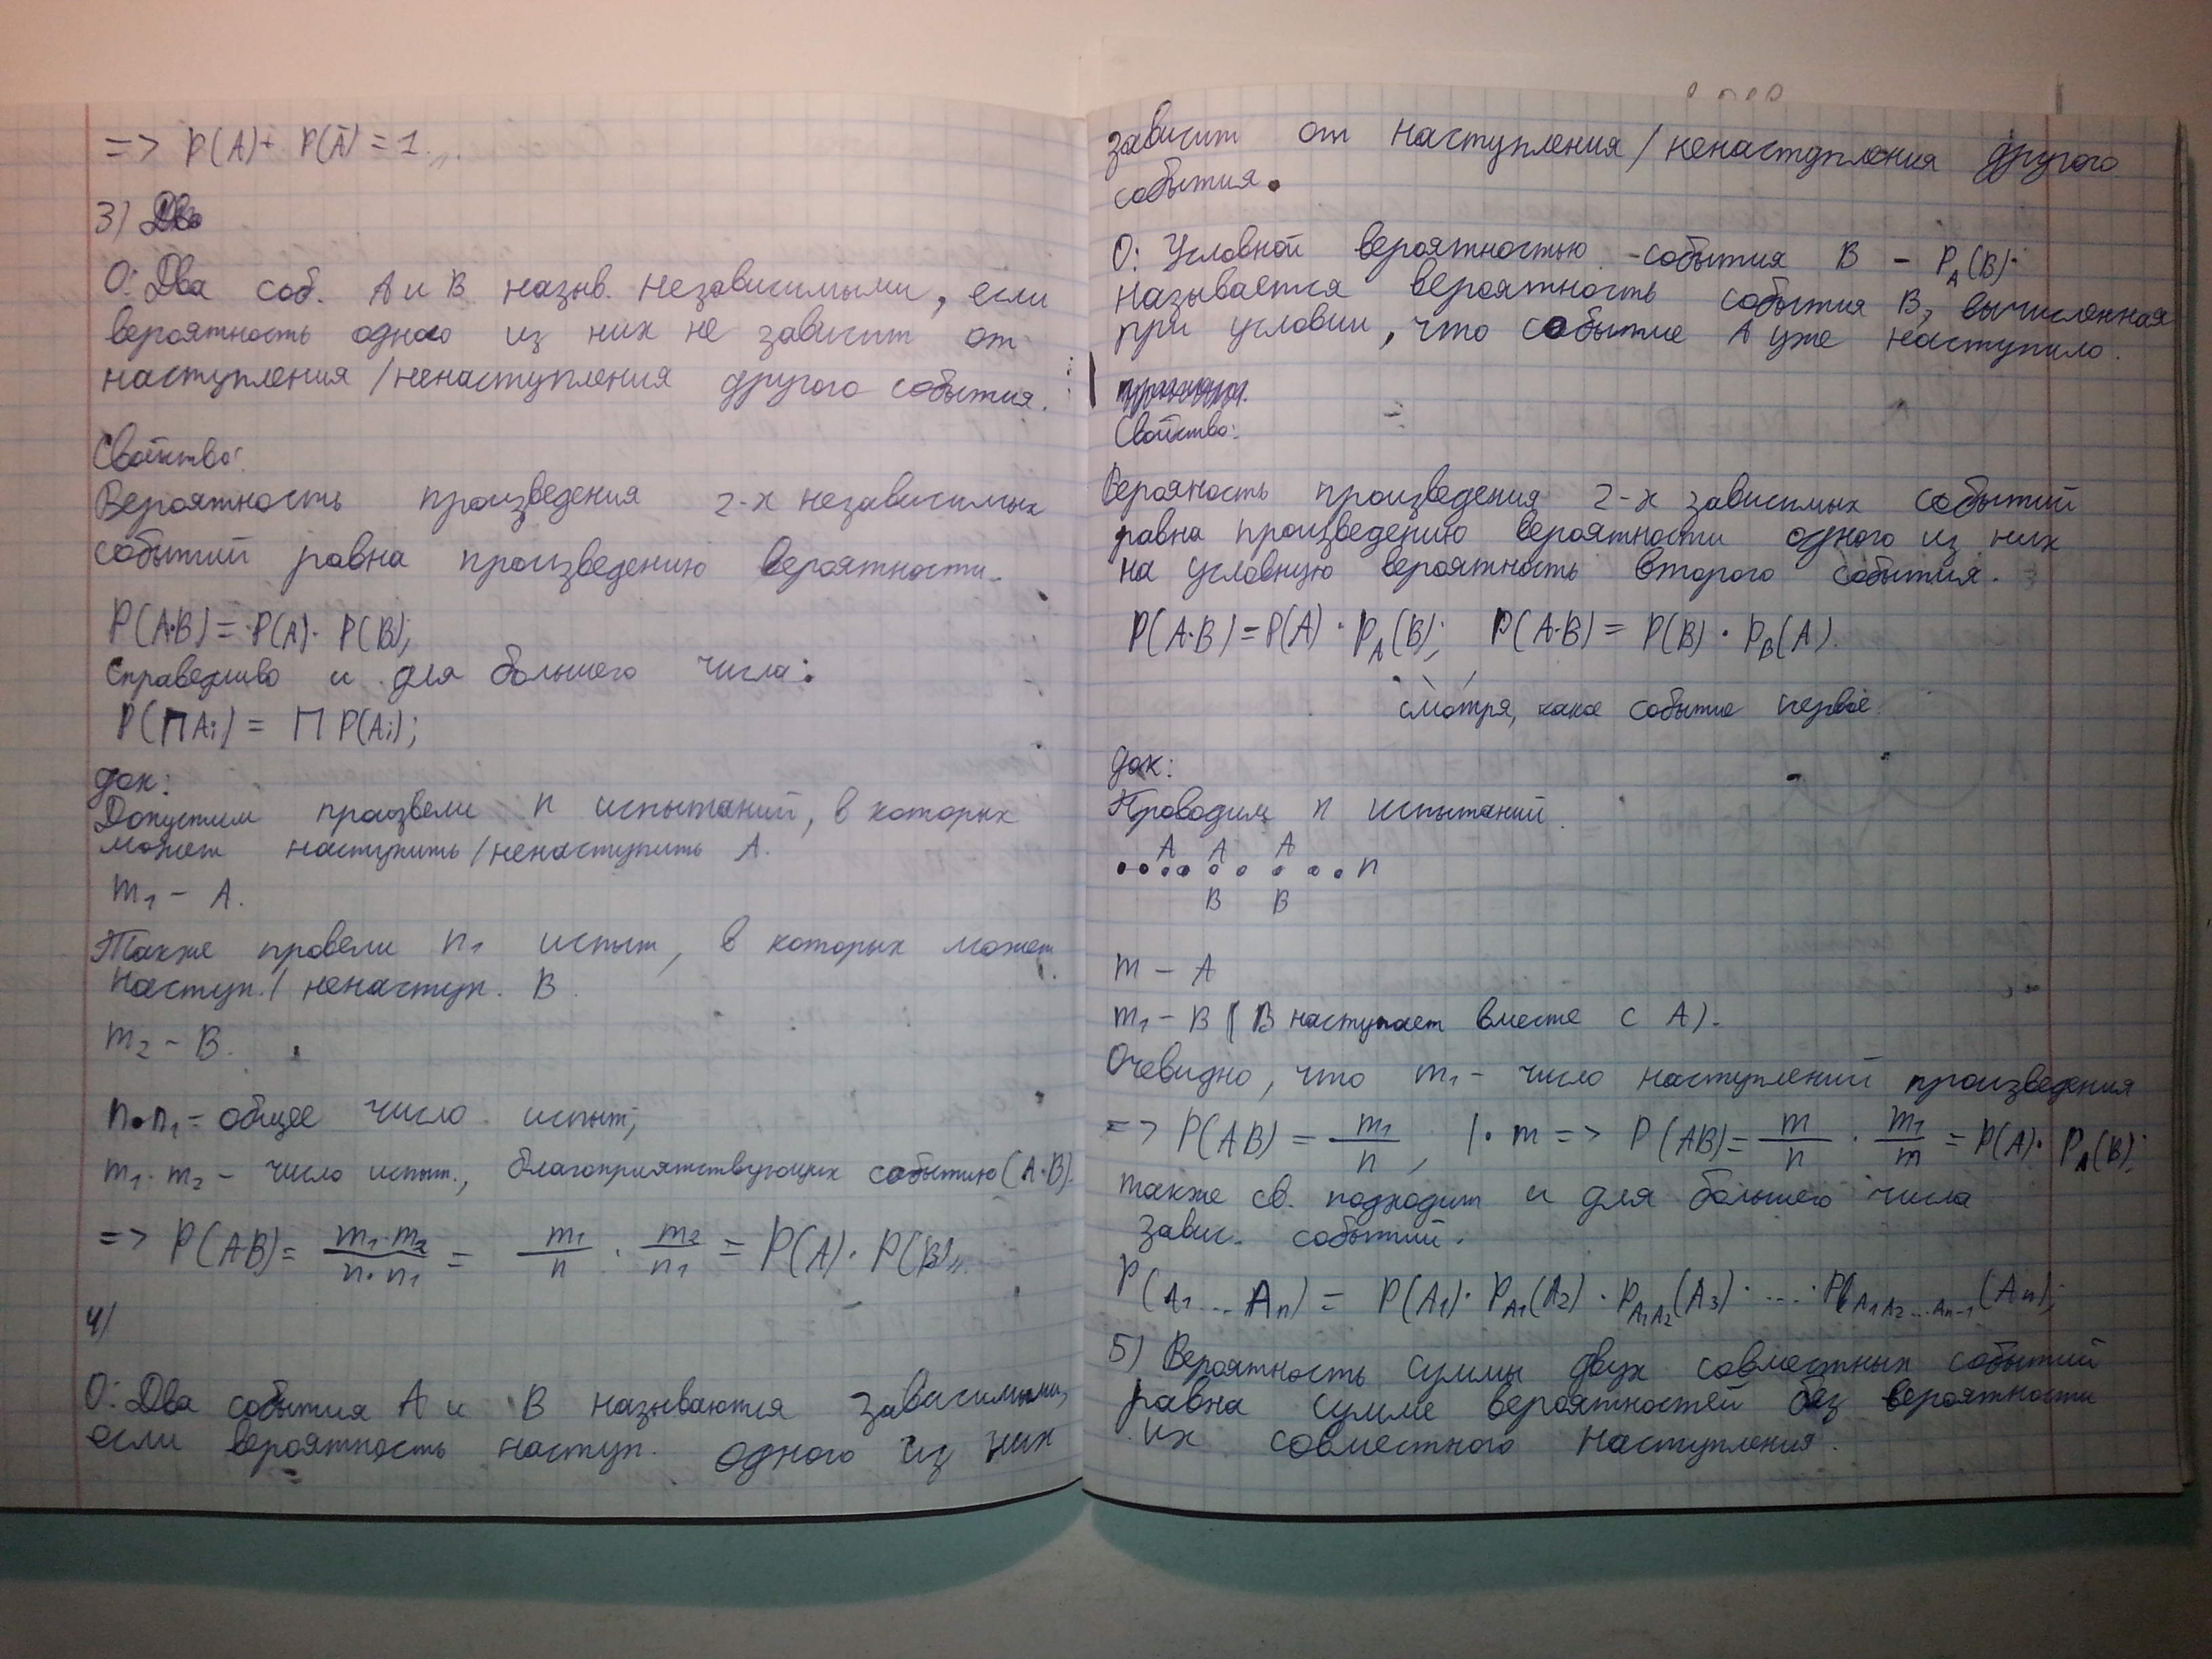 => P(A)+ P(Ā) = 1.
3)
О: Два соб. A и B назыв. независимыми, если
вероятность одного из них не зависит от
наступления/ненаступления другого события.
Свойство:
Вероятность произведения 2-х независимых
событий равна произведению вероятности.
P(A·B) = P(A)· P(B);
Справедливо и для большего числа:
P(ПAi) = П P(Ai);
док:
Допустим произвели n испытаний, в которых
может наступить/ненаступить A.
m₁ – A.
Также провели n₁ испыт, в которых может
наступ./ ненаступ. B.
m₂ – B.
n·n₁ = общее число испыт;
m₁·m₂ – число испыт., благоприятствующих событию (A·B).
=> P(AB) = m₁·m₂/n·n₁ = m₁/n · m₂/n₁ = P(A)· P(B),,
4)
О: Два события A и B называются зависимыми,
если вероятность наступ. одного из них
зависит от наступления/ненаступления другого
события.
О: Условной вероятностью события B – P_A(B)
называется вероятность события B, вычисленная
при условии, что событие A уже наступило.
Свойство:
Верояность произведения 2-х зависимых событий
равна произведению вероятности одного из них
на условную вероятность второго события.
P(A·B) = P(A) · P_A(B); P(A·B) = P(B) · P_B(A).
смотря, какое событие первое
док:
Проводим n испытаний.
A A A
n
B B
m – A
m₁ – B (B наступает вместе с A).
Очевидно, что m₁ – число наступлений произведения
=> P(AB) = m₁/n, |· m => P(AB) = m/n · m₁/m = P(A)· P_A(B);
также св. подходит и для большего числа
завис. событий.
P(A₁...Aₙ) = P(A₁)· P_A₁(A₂) · P_A₁A₂(A₃) · ... · P_A₁A₂...Aₙ₋₁(Aₙ);
5) Вероятность суммы двух совместных событий
равна сумме вероятностей без вероятности
их совместного наступления.